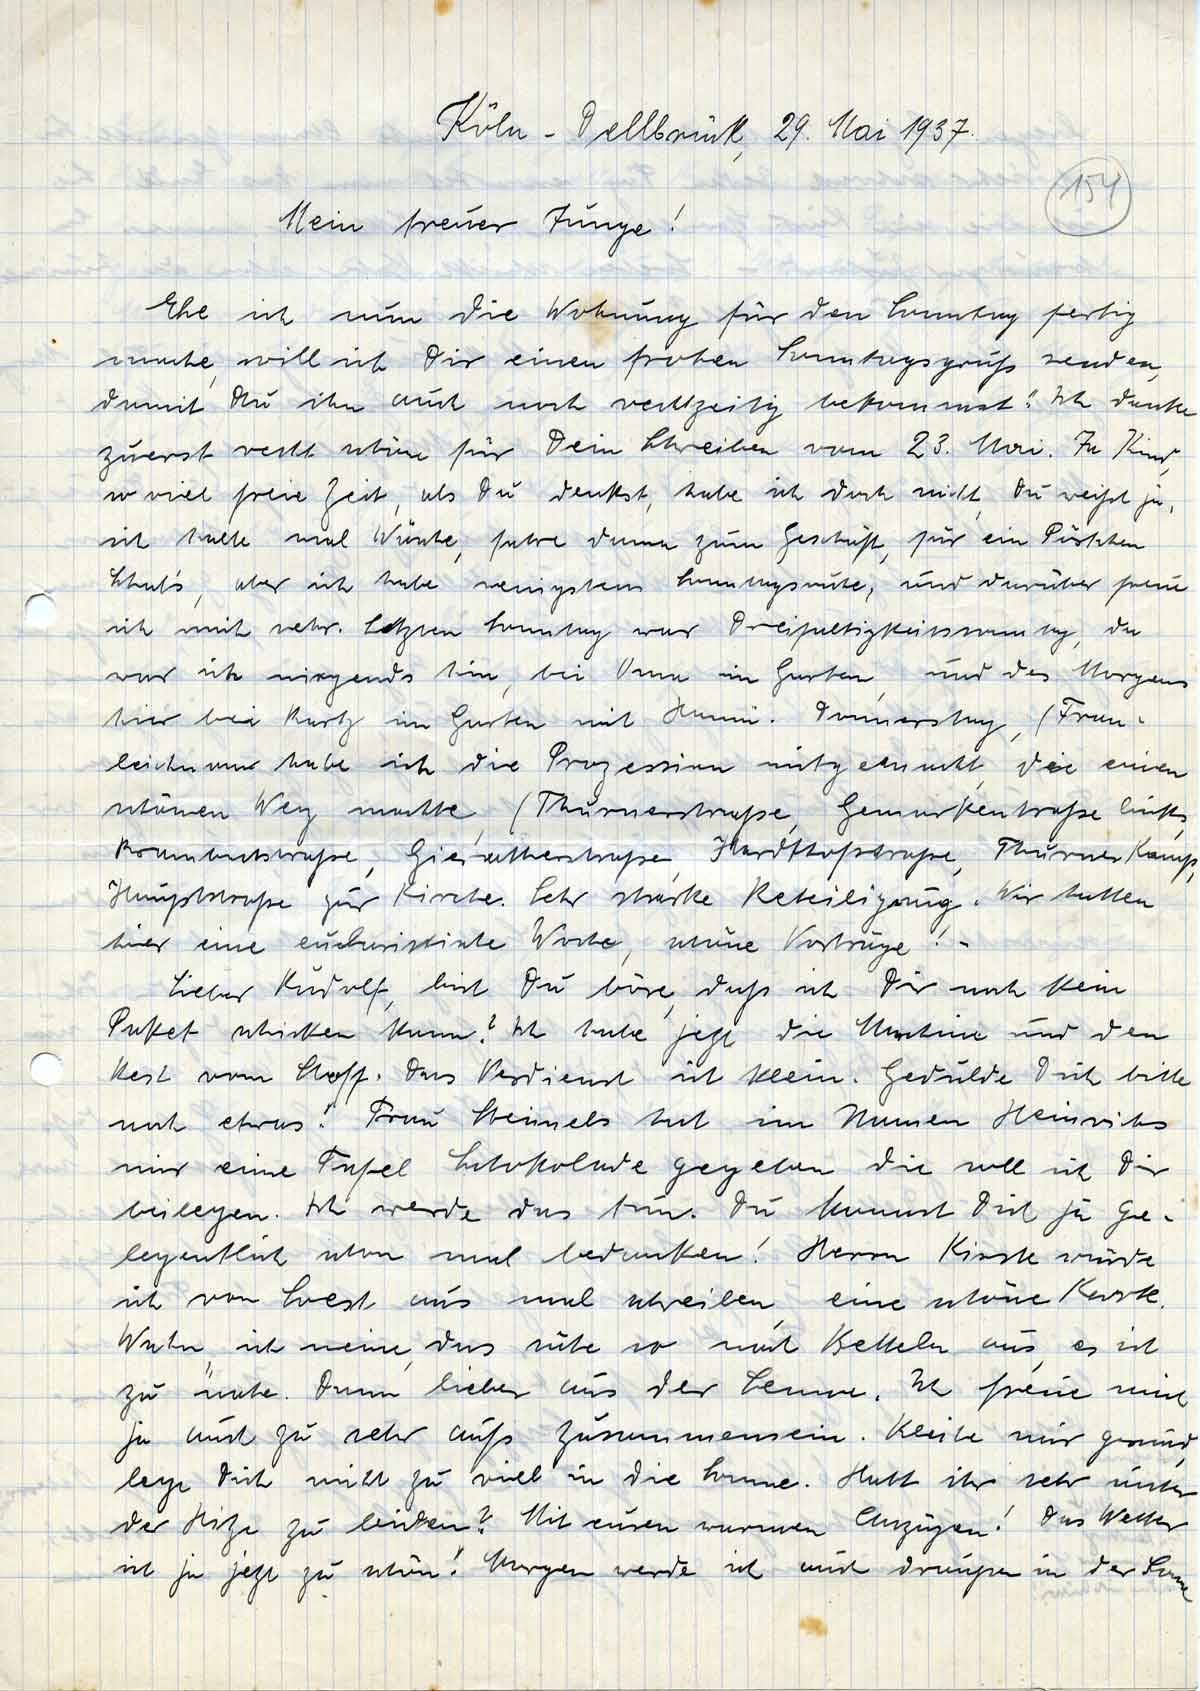 Köln - Dellbrück, 29. Mai 1937.
154
Mein treuer Junge!
Ehe ich nun die Wohnung für den Sonntag fertig
mache, will ich Dir einen frohen Sonntagsgruß senden,
damit Du ihn auch noch rechtzeitig bekommst! Ich danke
zuerst recht schön für Dein Schreiben vom 23. Mai. Ja Kind,
so viel freie Zeit, als Du denkst, habe ich doch nicht, Du weißt ja,
ich halte mal Wäsche, fahre dann zum Geschäft, für ein Pöstchen
Schals, aber ich habe wenigstens Sonntagsruhe, und darüber freue
ich mich sehr. Letzten Sonntag war Dreifaltigkeitssonntag, da
war ich nirgends hin, bei Oma im Garten, und des Morgens
hier bei Kurtz im Garten mit Hanni. Donnerstag, (Fron-
leichnam habe ich die Prozession mitgemacht, die einen
schönen Weg machte, (Thurnerstraße, Gemarkenstraße links,
Brambachstraße, Gieratherstraße, Hardthofstraße, Thurner Kamp,
Hauptstraße zur Kirche. Sehr starke Beteiligung. Wir hatten
hier eine eucharistische Woche, schöne Vorträge! -
Lieber Rudolf, bist Du böse, daß ich Dir noch kein
Paket schicken kann? Ich habe jetzt die Maschine und den
Rest vom Stoff. Das Verdienst ist klein. Gedulde Dich bitte
noch etwas! Frau Steinnels hat im Namen Heinrichs
mir eine Tafel Schokolade gegeben die soll ich Dir
beilegen. Ich werde das tun. Du kannst Dich ja ge-
legentlich schon mal bedanken! Herrn Kirste würde
ich von Soest aus mal schreiben, eine schöne Karte.
Wahn, ich meine, das sähe so nach Betteln aus, es ist
zu nahe. Dann lieber aus der Senne. Ich freue mich
ja auch zu sehr aufs Zusammensein. Bleibe mir gesund,
lege Dich nicht zu viel in die Sonne. Habt ihr sehr unter
der Hitze zu leiden? Mit euren warmen Anzügen! Das Wetter
ist ja jetzt zu schön! Morgen werde ich auch draußen in der Sonne